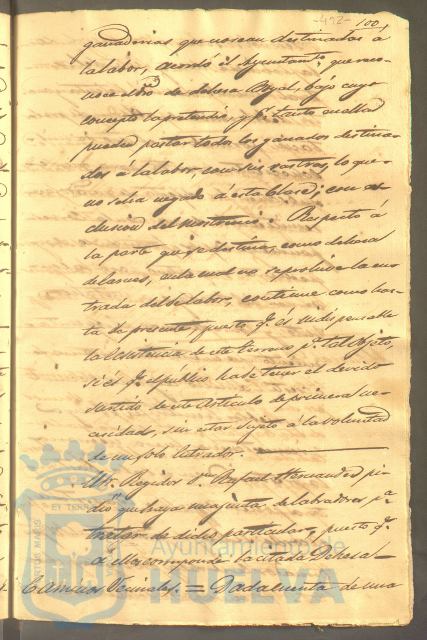 -492- 100,
ganaderias que no sean destinadas á
la labor, acordó el Ayuntamto. que
de dehesa Boyal, bajo cuyo
concepto la pretendió, y pr. tanto en ella
pueden pastar todos los ganados destina-
dos á la labor, con sus rastras, lo que
no se ha negado á esta clase, con es-
clusion del mostrenco. Respecto á
la parte que se destina, como dehesa
de la cual no se prohive la en-
trada del de labor, continue como has-
ta la presente, puesto q. és indispensable
la existencia de este terreno pa. tal objeto,
si és q. el público ha de tener el devido
surtido de este artículo de primera ne-
cesidad, sin estar sujeto á la voluntad
de un solo
El Sr. Regidor Dn. Rafael Hernandez pi-
dió que haya una junta de labradores pa.
tratar de dicho particular, puesto q.
á ellos corresponde la citada Dehesa =
Caminos Vecinales = Dada cuenta de una
Ayuntamiento de
HUELVA